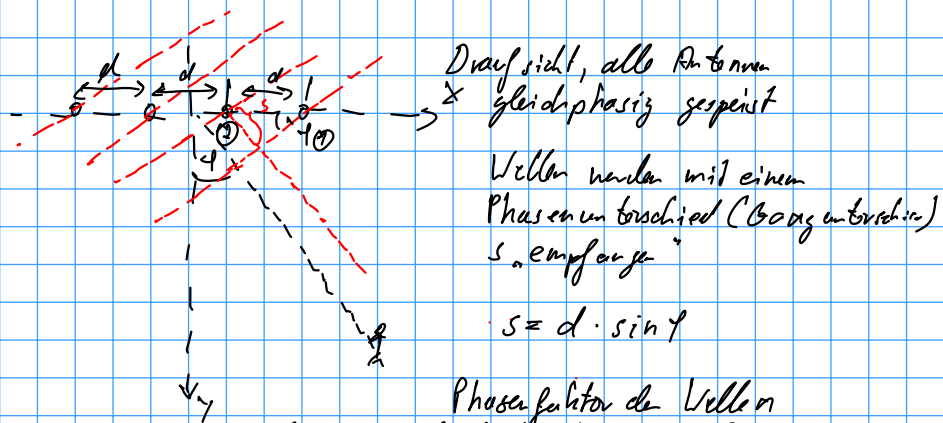 d
d
d
s
φ
①
②
φ
x
y
Draufsicht, alle Antennen
gleichphasig gespeist
Wellen werden mit einem
Phasenunterschied (Gangunterschied)
s „empfangen“
s = d · sin φ
Phasenfaktor der Wellen